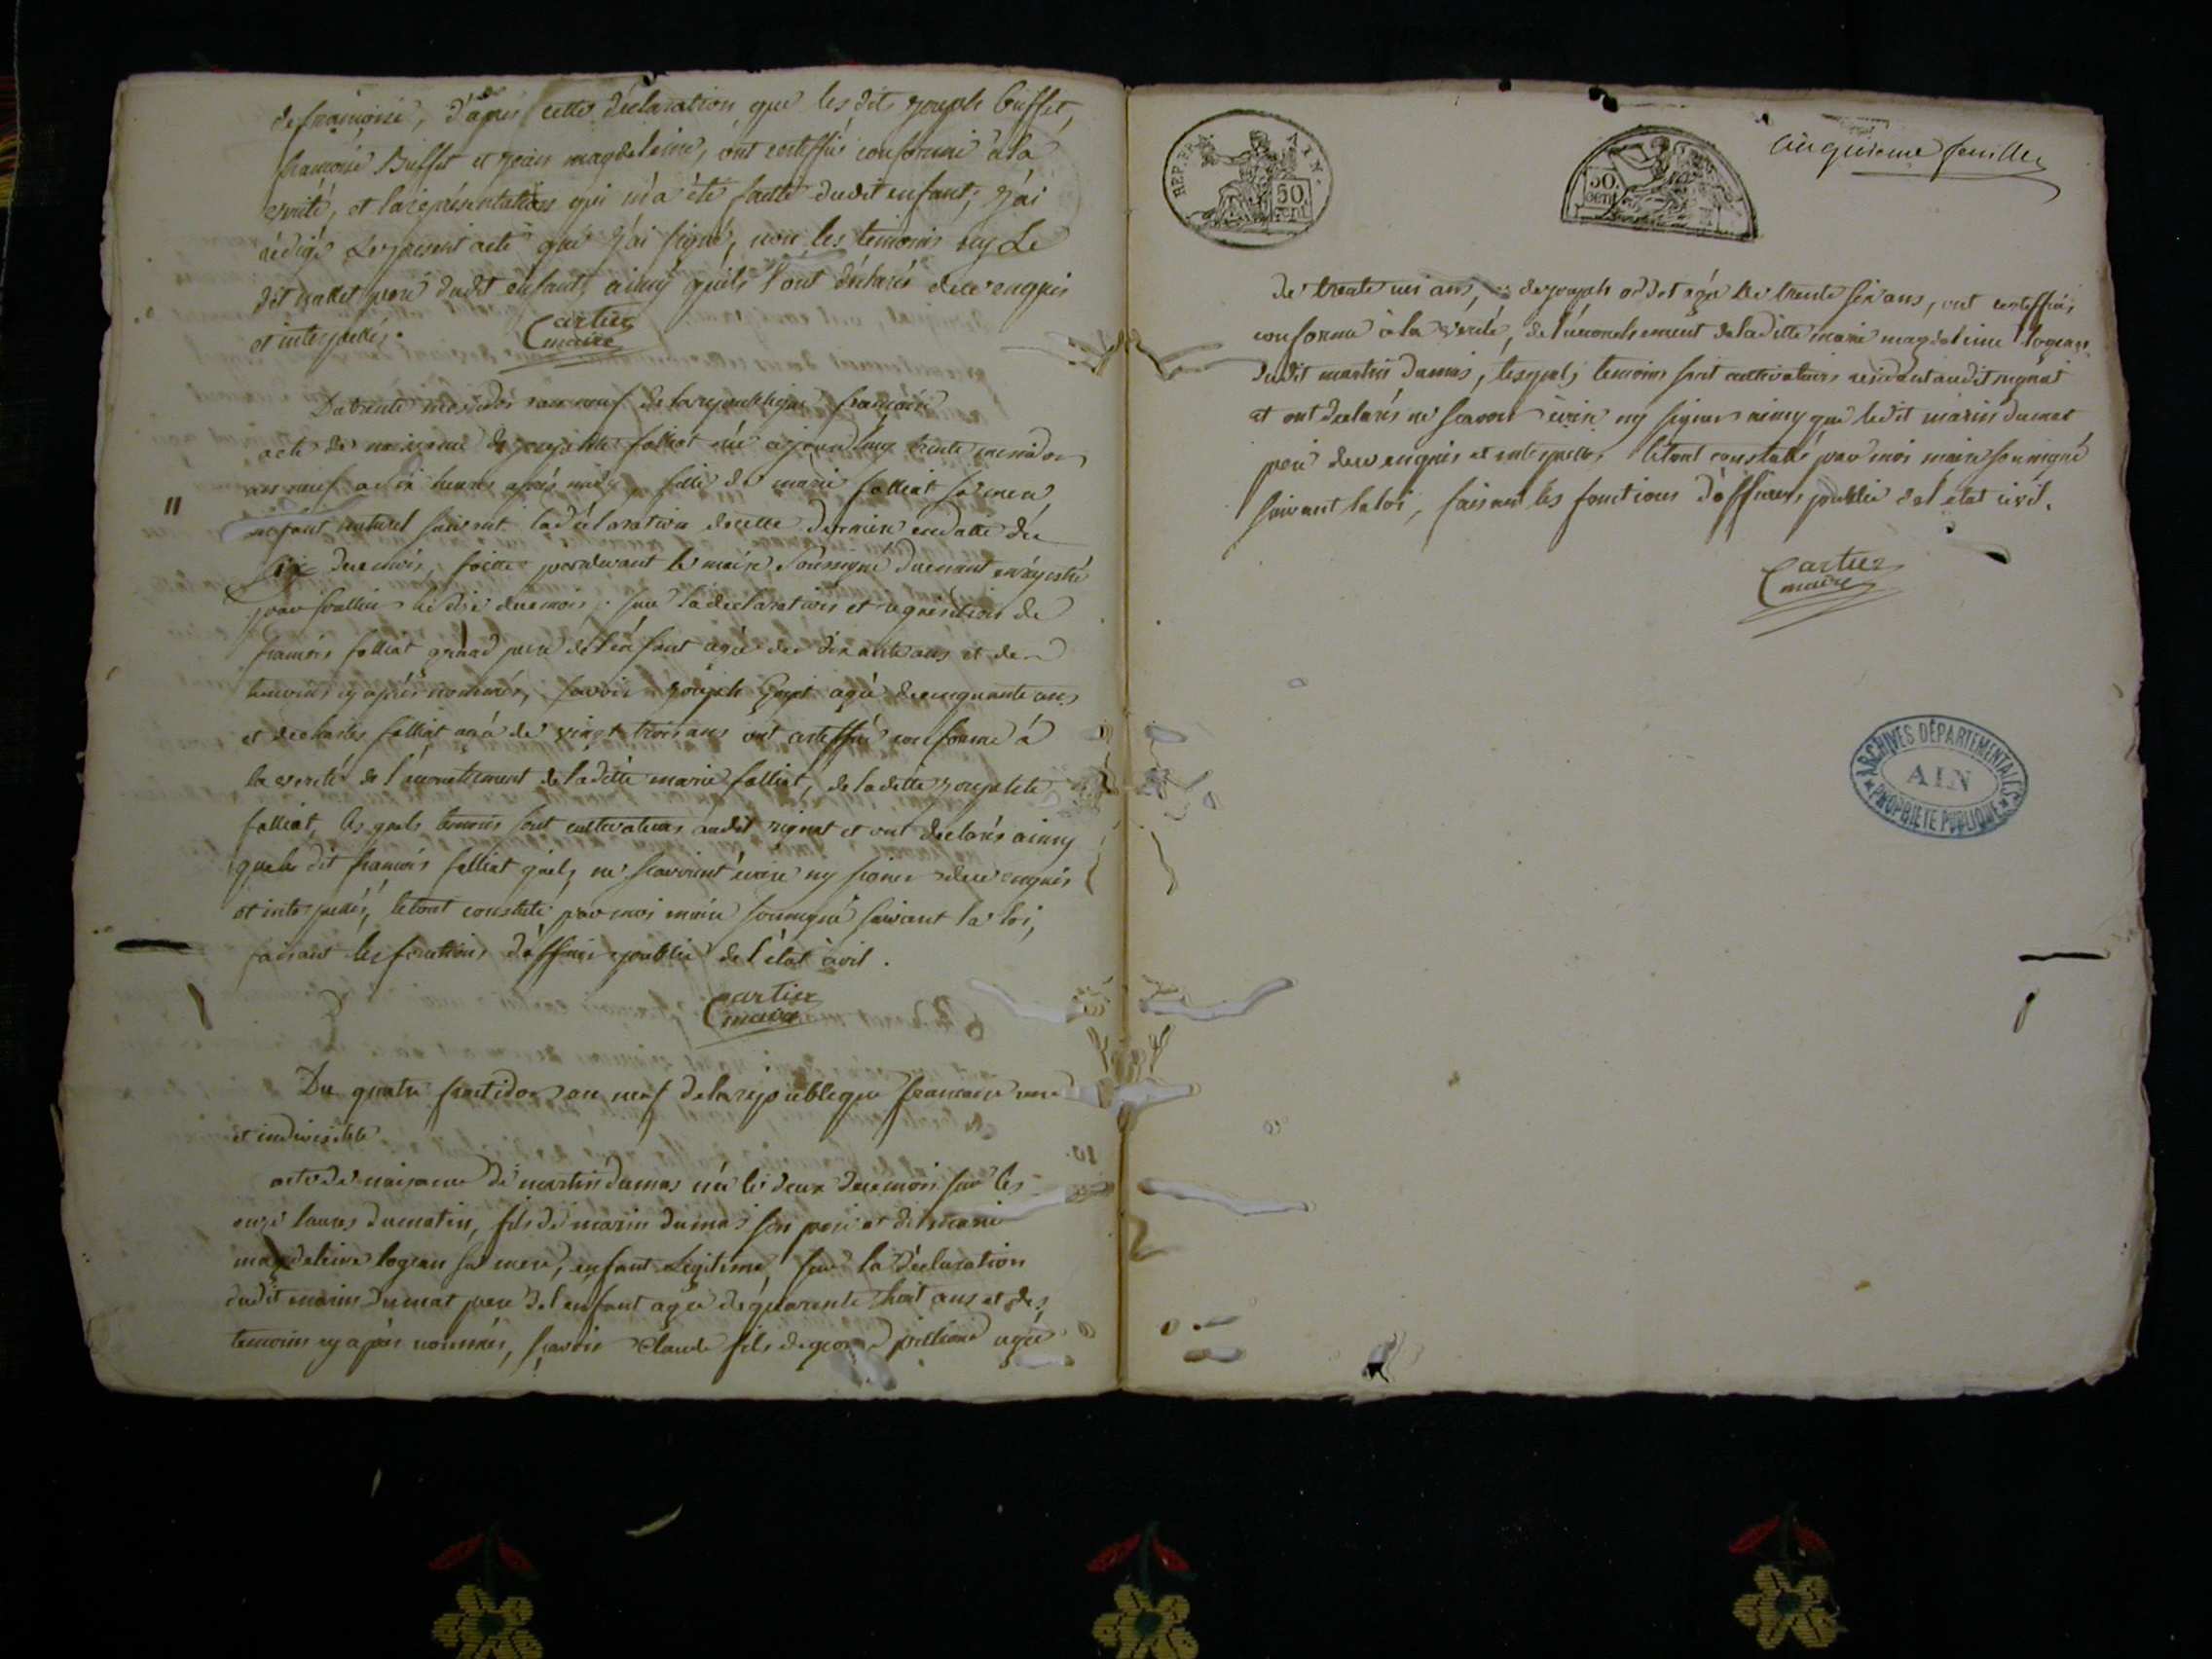 de francoise, d'après cette déclaration que les dits joseph buffet,
francoise Buffet et magdeleine, ont certiffié conforme à la
verité, et la représentation qui m'a été faitte dudit enfant, j'ai
rédigé le present acte que j'ai signé, non les temoins ny Le
dit pere dudit enfant, ainsy quils l'ont déclarés de ce enquis
et interpellés.
Cartier
maire
Du trente messidor an neuf de la republique francoise
acte de naissance de josephte folliat née aujourd'huy trente messidor
an neuf a dix heures après midy, fille de marie folliat sa mere
enfant naturel suivant la déclaration de cette derniere en datte du
six du mois, faitte pardevant le maire soussigné duement enrégistré
par le dix du mois, sur la declaration et requisition de
francois folliat grand pere de l'enfant agé de ans et de
temoins cy après nommés, savoir joseph agé de cinquante ans
et de charles folliat agé de vingt trois ans ont certiffié conforme à
la verité de l'accouchement de la ditte marie folliat, de la ditte josephte
folliat, les quels temoins sont cultivateurs audit rignat et ont declarés ainsy
que le dit francois folliat quils ne scavoient écrire ny signer de ce enquis
et interpellés, le tout constaté par moi maire soussigné suivant la loi,
faisant les fonctions d'officier public de l'état civil.
Cartier
maire
Du quatre fructidor an neuf de la republique francoise une
et indivisible
acte de naissance de martin dumas né le deux du mois sur les
onze heures du matin, fils de marin dumas son pere et de marie
magdeleine logean sa mere, enfant légitime, sur la déclaration
dudit marin dumat pere de l'enfant agé de quarente huit ans et des
temoins cy après nommés, scavoir Claude fils de george agé
REP. FRA. AIN.
50
cent
50
cent
Cinquieme feuille
de trente un ans, de joseph oddet agé de trente six ans, ont certiffiés
conforme à la verité, de l'accouchement de la ditte marie magdeleine logean
dudit martin dumas, lesquels temoins sont cultivateurs residant audit rignat
et ont declarés ne scavoir écrire ny signer ainsy que ledit marin dumat
pere de ce enquis et interpellés le tout constaté par moi maire soussigné
suivant la loi, faisant les fonctions d'officier public de l'état civil.
Cartier
maire
ARCHIVES DÉPARTEMENTALES
AIN
PROPRIETE PUBLIQUE